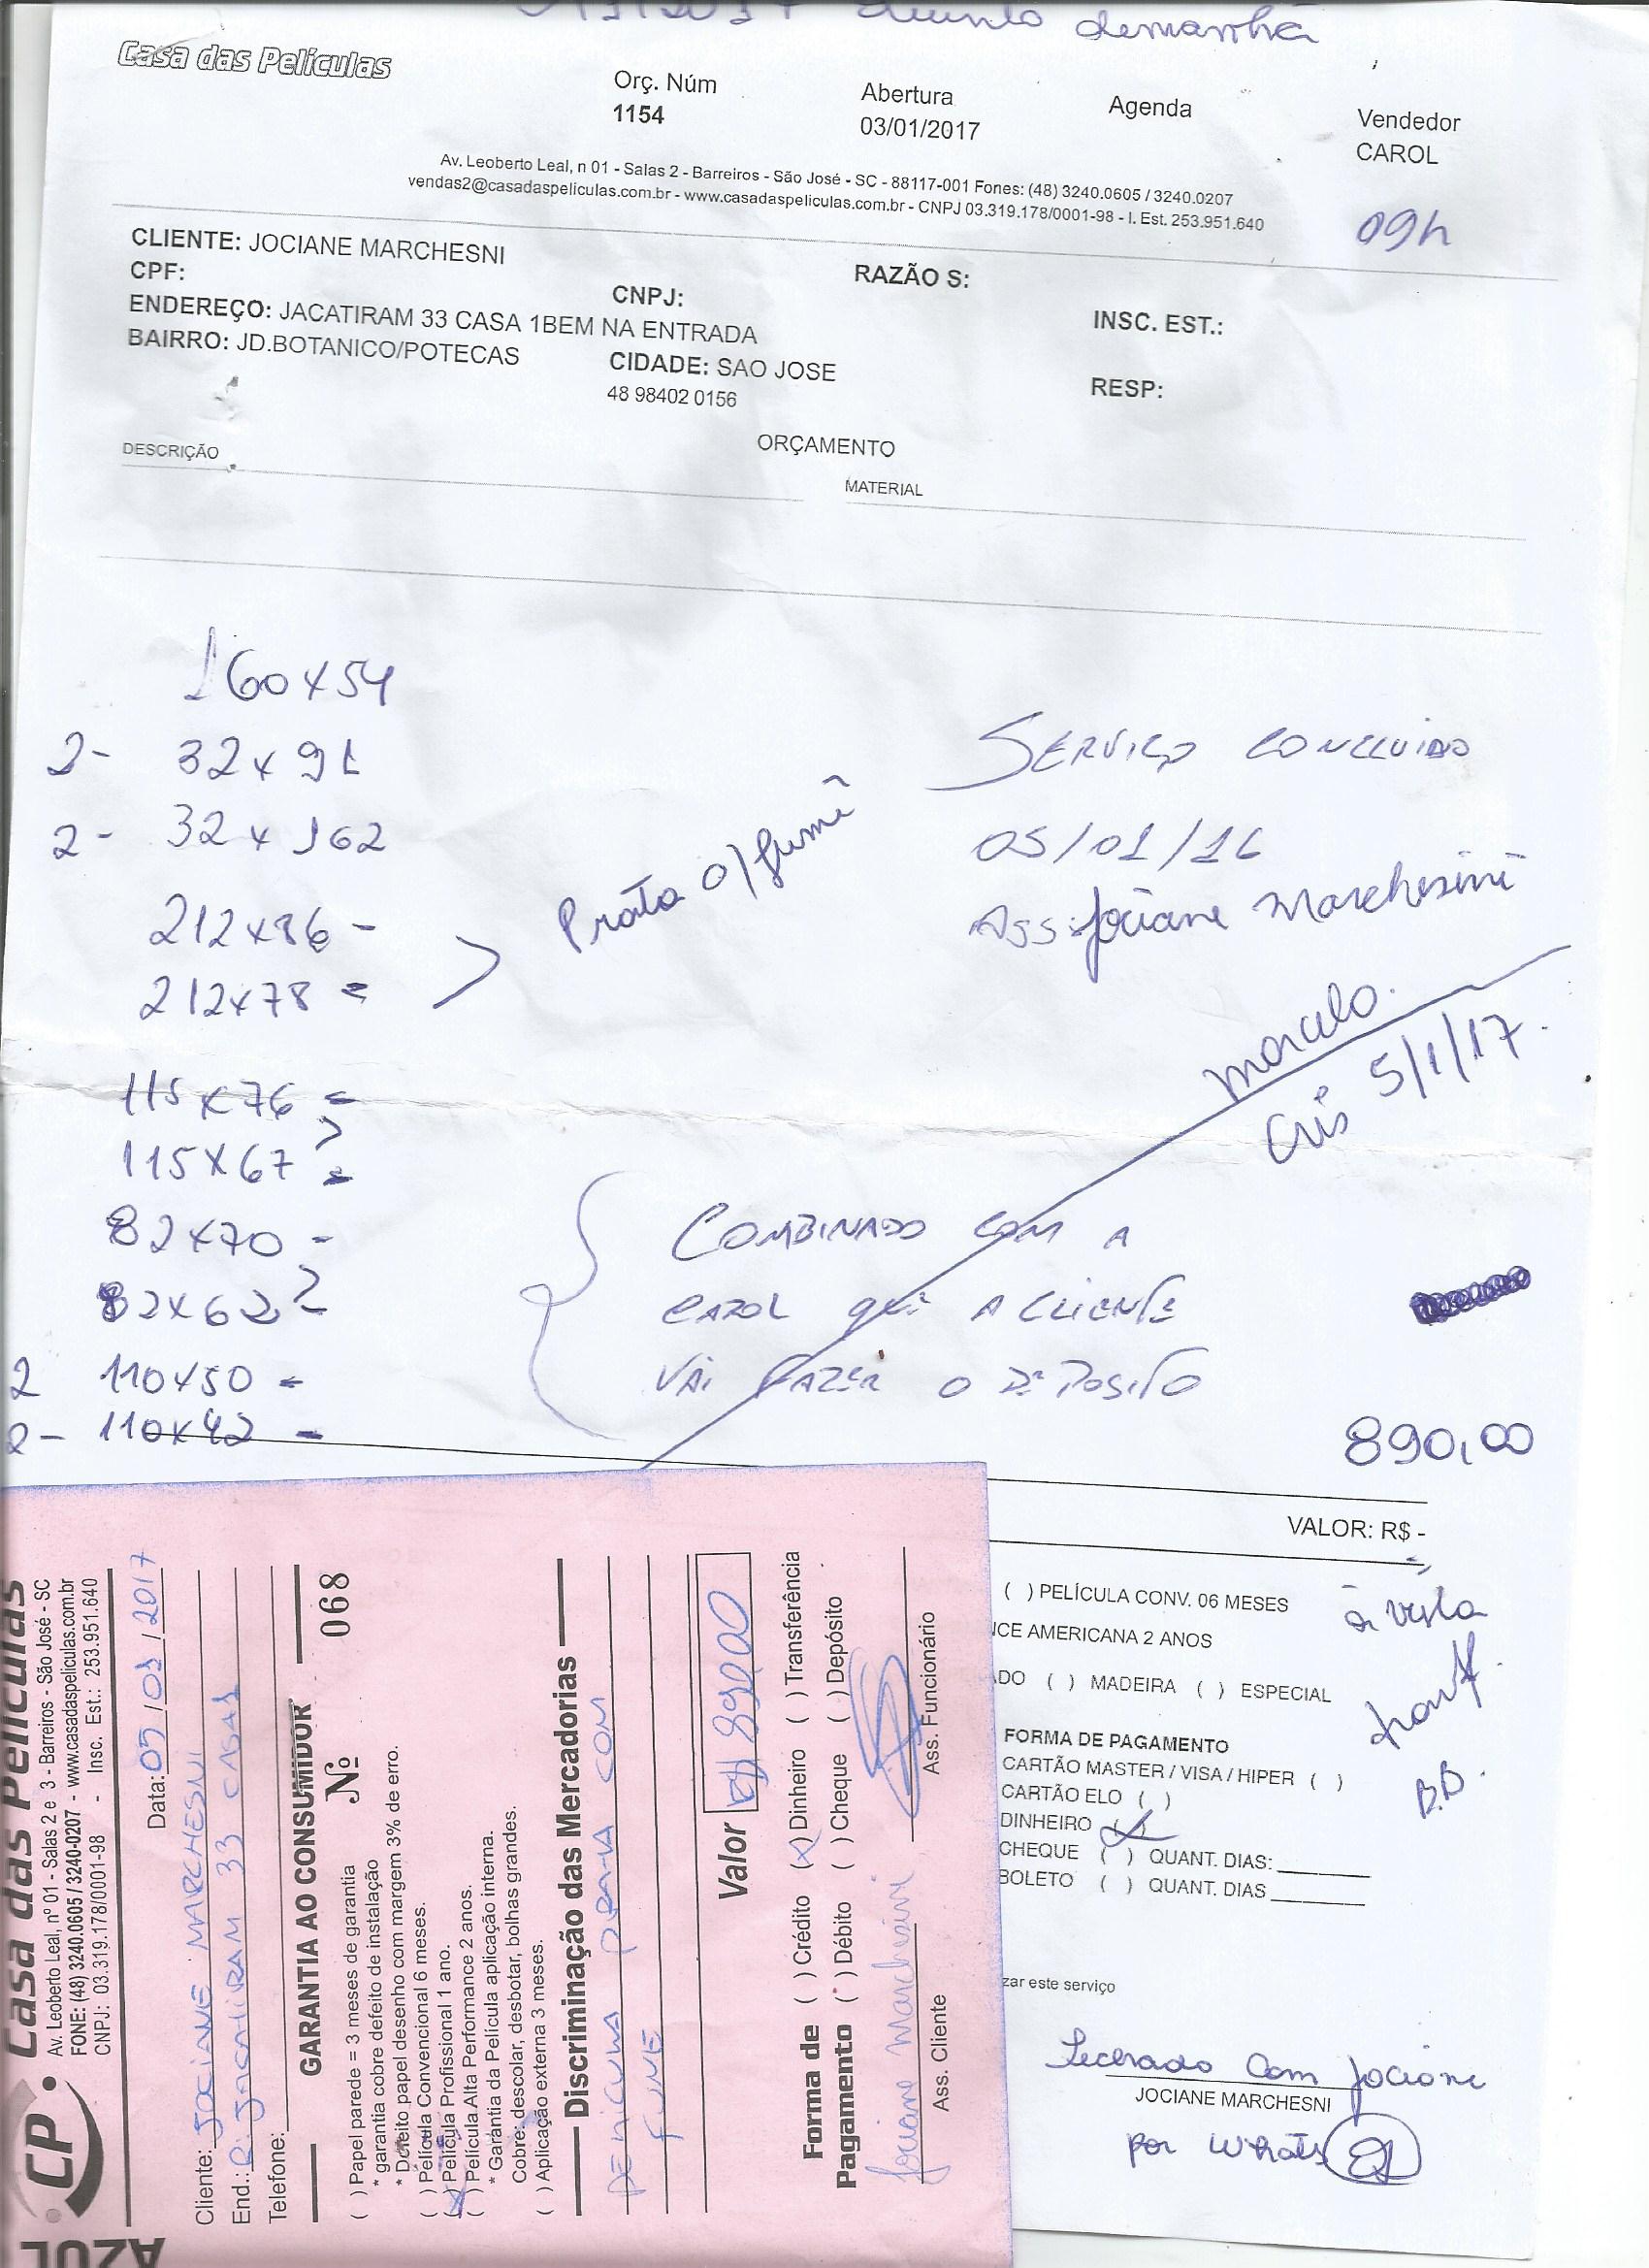 demanhã
Casa das Películas
Orç. Núm
1154
Abertura
03/01/2017
Agenda
Vendedor
CAROL
Av. Leoberto Leal, n 01 - Salas 2 - Barreiros - São José - SC - 88117-001 Fones: (48) 3240.0605 / 3240.0207
vendas2@casadaspeliculas.com.br - www.casadaspeliculas.com.br - CNPJ 03.319.178/0001-98 - I. Est. 253.951.640
09h
CLIENTE: JOCIANE MARCHESNI
RAZÃO S:
CPF:
CNPJ:
INSC. EST.:
ENDEREÇO: JACATIRAM 33 CASA 1BEM NA ENTRADA
BAIRRO: JD.BOTANICO/POTECAS
CIDADE: SAO JOSE
RESP:
48 98402 0156
ORÇAMENTO
DESCRIÇÃO
MATERIAL
160x54
2- 32x91
2- 32x162
212x86 -
212x78 =
Prata c/ fumê
SERVIÇO CONCLUIDO
05/01/16
ASS: Jociane Marchesini
marcelo.
Cris 5/1/17.
115x76 =
115x67 =
82x70 -
82x62 -
2 110x50 -
2- 110x42 -
COMBINADO COM A
CAROL QUE A CLIENTE
VAI FAZER O DEPOSITO
890,00
VALOR: R$ -
( ) PELÍCULA CONV. 06 MESES
NCE AMERICANA 2 ANOS
ADO ( ) MADEIRA ( ) ESPECIAL
à vista
transf.
B.B.
FORMA DE PAGAMENTO
CARTÃO MASTER / VISA / HIPER ( )
CARTÃO ELO ( )
DINHEIRO (X)
CHEQUE ( ) QUANT. DIAS:
BOLETO ( ) QUANT. DIAS
zar este serviço
Fechado com Jociane
JOCIANE MARCHESNI
por Whats
AZUL
CP
Casa das Películas
Av. Leoberto Leal, nº 01 - Salas 2 e 3 - Barreiros - São José - SC
FONE: (48) 3240.0605 / 3240-0207 - www.casadaspeliculas.com.br
CNPJ: 03.319.178/0001-98 - Insc. Est.: 253.951.640
Data: 05/01/2017
Cliente: JOCIANE MARCHESNI
End.: R: JACATIRAM 33 CASA1
Telefone:
GARANTIA AO CONSUMIDOR Nº 068
( ) Papel parede = 3 meses de garantia
* garantia cobre defeito de instalação
* Defeito papel desenho com margem 3% de erro.
( ) Película Convencional 6 meses.
(X) Película Profissional 1 ano.
( ) Película Alta Performance 2 anos.
* Garantia da Película aplicação interna.
Cobre: descolar, desbotar, bolhas grandes.
( ) Aplicação externa 3 meses.
Discriminação das Mercadorias
PELICULA PRATA COM
FUME
Valor R$ 890,00
Forma de Pagamento
( ) Crédito (X) Dinheiro ( ) Transferência
( ) Débito ( ) Cheque ( ) Depósito
Jociane Marchesini
Ass. Cliente
Ass. Funcionário